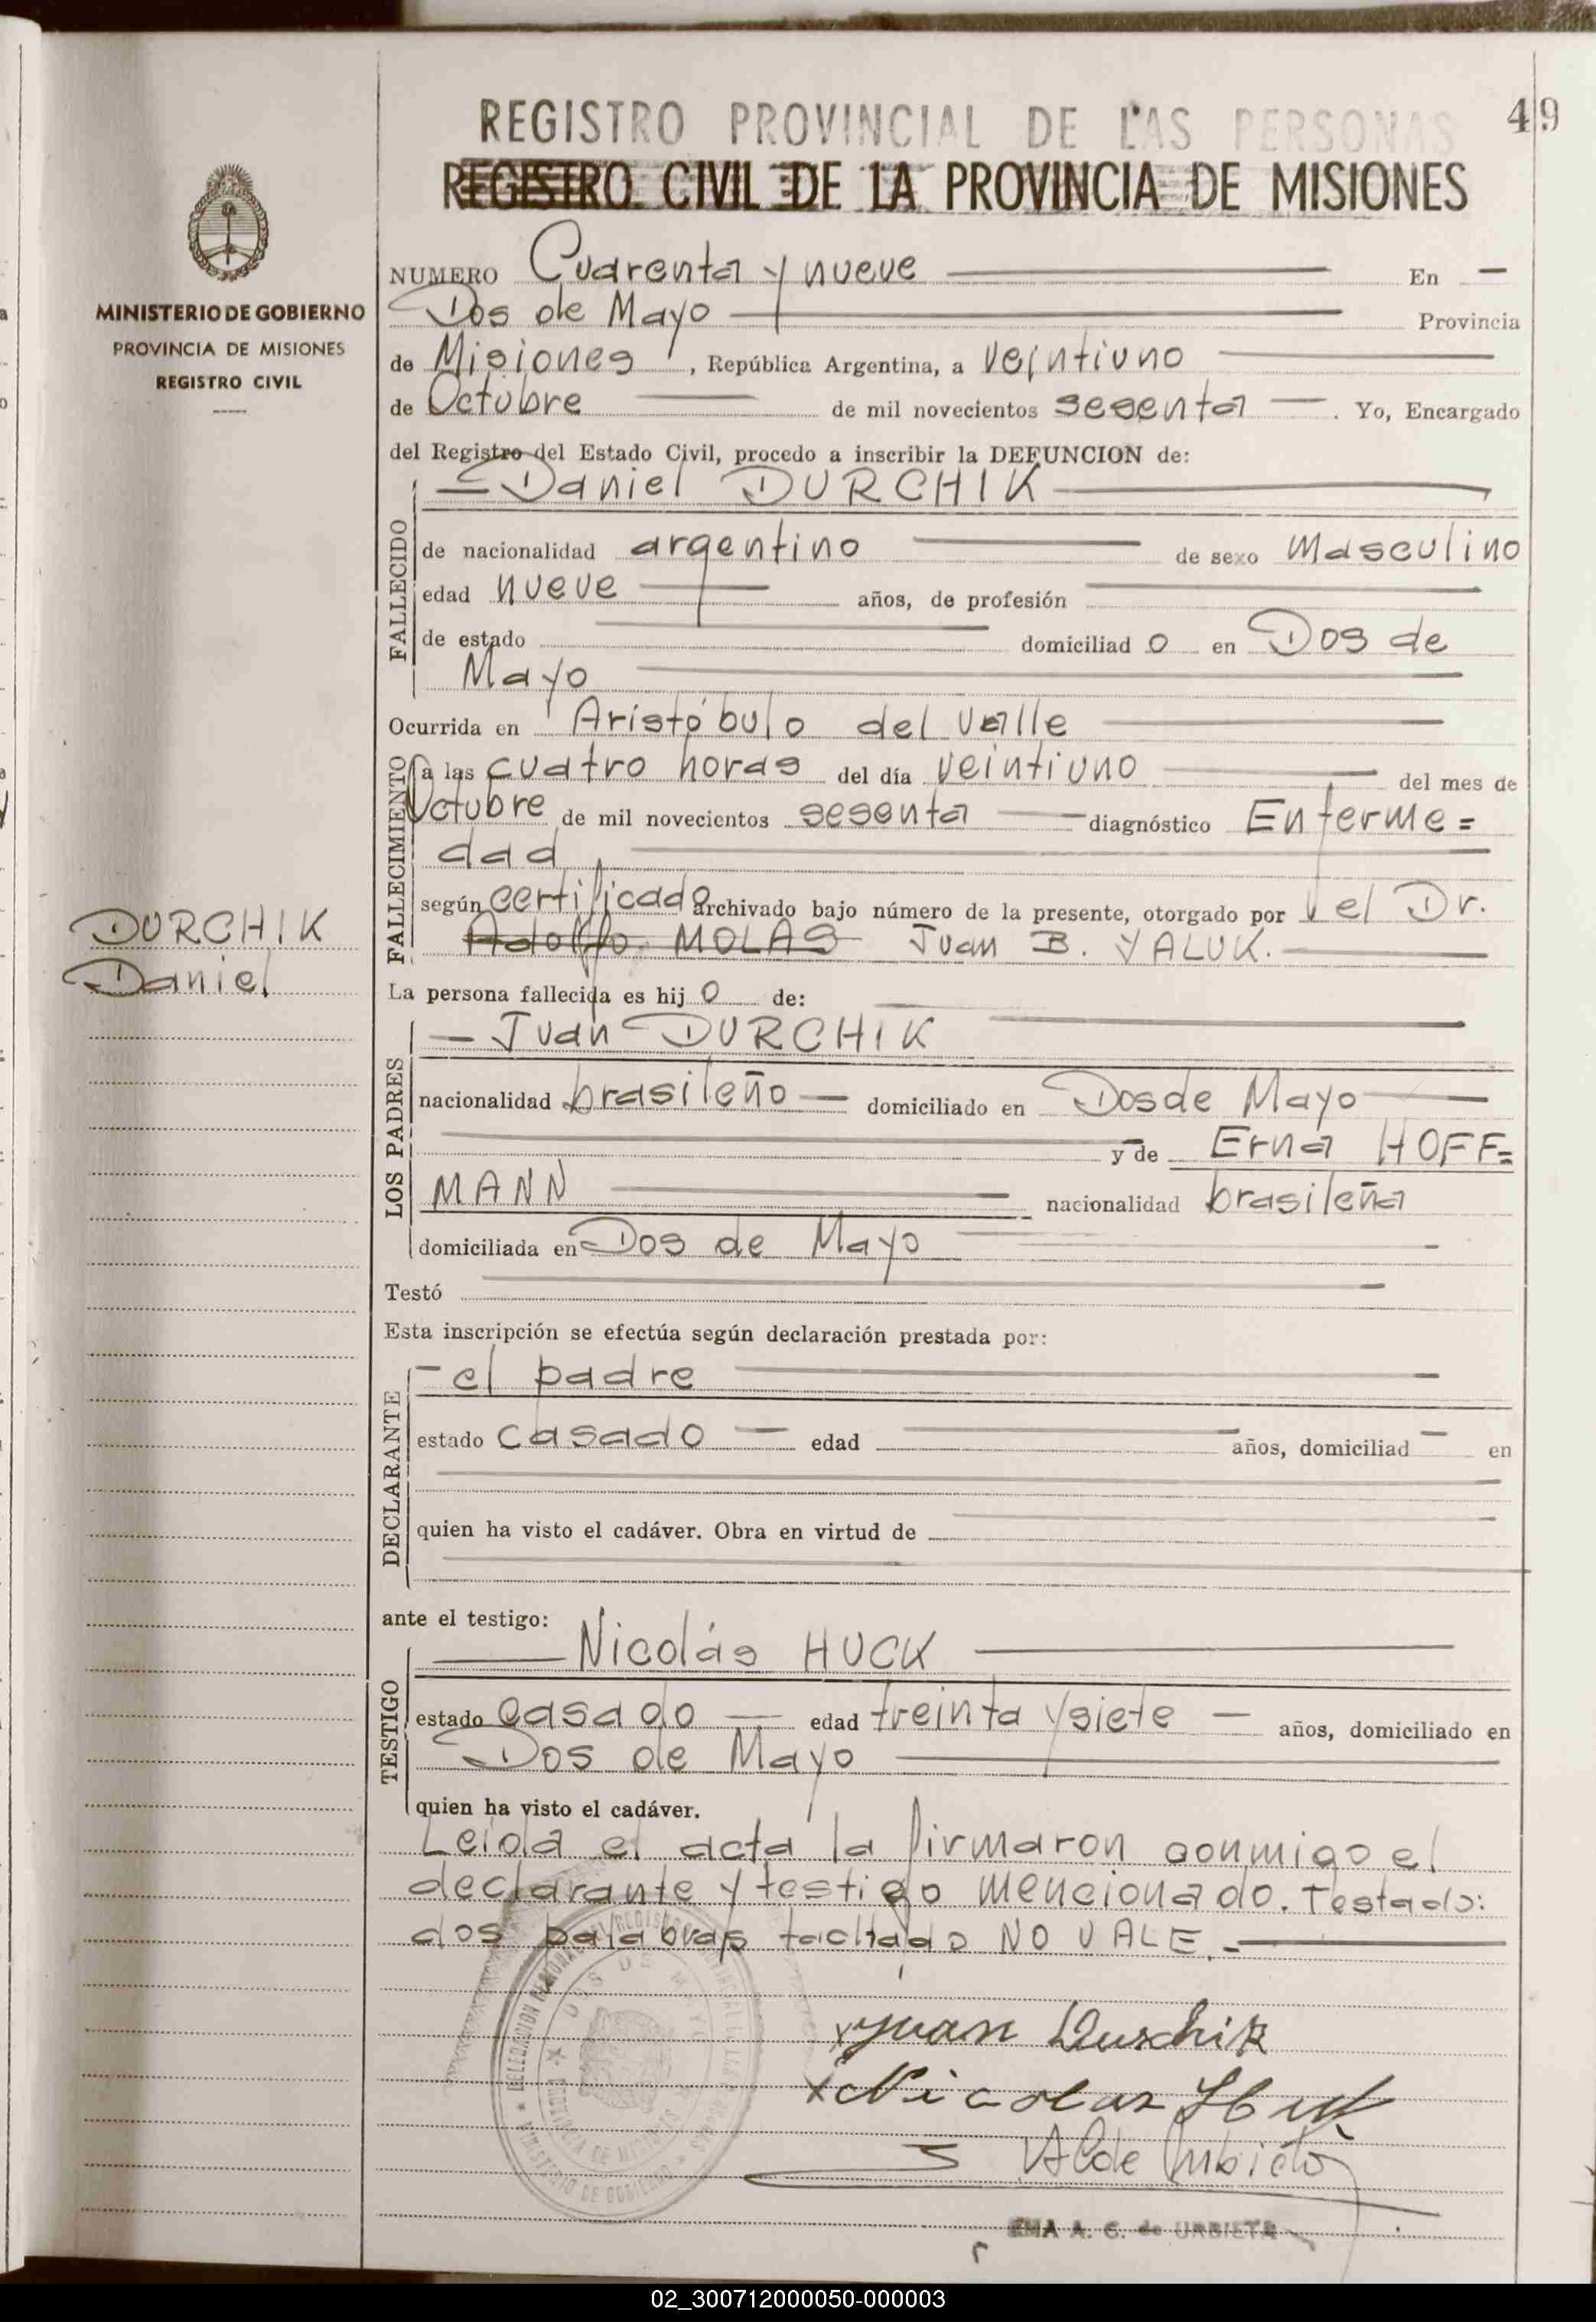 49
REGISTRO PROVINCIAL DE LAS PERSONAS
REGISTRO CIVIL DE LA PROVINCIA DE MISIONES
MINISTERIO DE GOBIERNO
PROVINCIA DE MISIONES
REGISTRO CIVIL
NUMERO Cuarenta y nueve En
Dos de Mayo Provincia
de Misiones, República Argentina, a veintiuno
de Octubre de mil novecientos sesenta. Yo, Encargado
del Registro del Estado Civil, procedo a inscribir la DEFUNCION de:
FALLECIDO
Daniel DURCHIK
de nacionalidad argentino de sexo masculino
edad nueve años, de profesión
de estado domiciliado en Dos de
Mayo
Ocurrida en Aristóbulo del Valle
FALLECIMIENTO
a las cuatro horas del día veintiuno del mes de
Octubre de mil novecientos sesenta diagnóstico Enferme=
dad
según certificado archivado bajo número de la presente, otorgado por el Dr.
Adolfo MOLAS Juan B. YALUK.
DURCHIK
Daniel
La persona fallecida es hijo de:
LOS PADRES
Juan DURCHIK
nacionalidad brasileño domiciliado en Dos de Mayo
y de Erna HOFF=
MANN nacionalidad brasileña
domiciliada en Dos de Mayo
Testó
Esta inscripción se efectúa según declaración prestada por:
DECLARANTE
el padre
estado casado edad años, domiciliad en
quien ha visto el cadáver. Obra en virtud de
ante el testigo:
TESTIGO
Nicolás HUCK
estado casado edad treinta y siete años, domiciliado en
Dos de Mayo
quien ha visto el cadáver.
Leida el acta la firmaron conmigo el
declarante y testigo mencionado. Testado:
dos palabras tachado NO VALE.
Juan Durchik
Nicolas Huk
A. C. de URBIETA
02_300712000050-000003